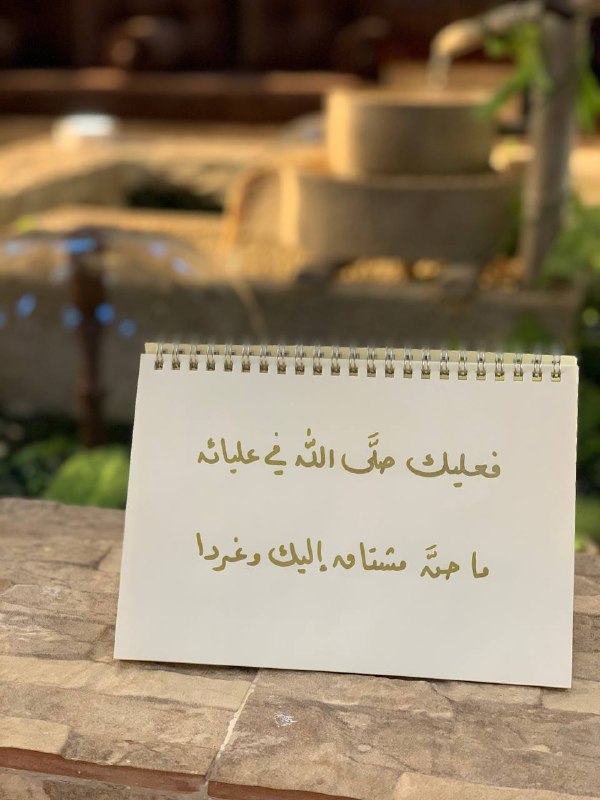 فعليك صلَّى الله في عليائه
ما حنَّ مشتاق إليك وغردا